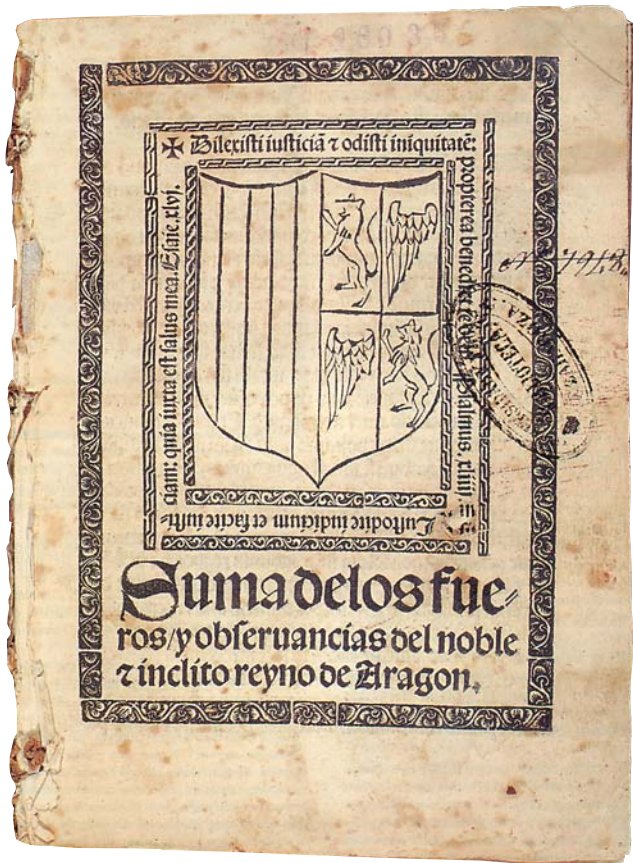 ✠ Dilexisti iusticiã ⁊ odisti iniquitatē:
propterea benedixit te deus. Psalmus. xliiii
Custodite iudicium et facite iusti-
ciam: quia iuxta est salus mea. Esaie. xlvi.
Suma delos fue-
ros/y obseruancias del noble
⁊ inclito reyno de Aragon.